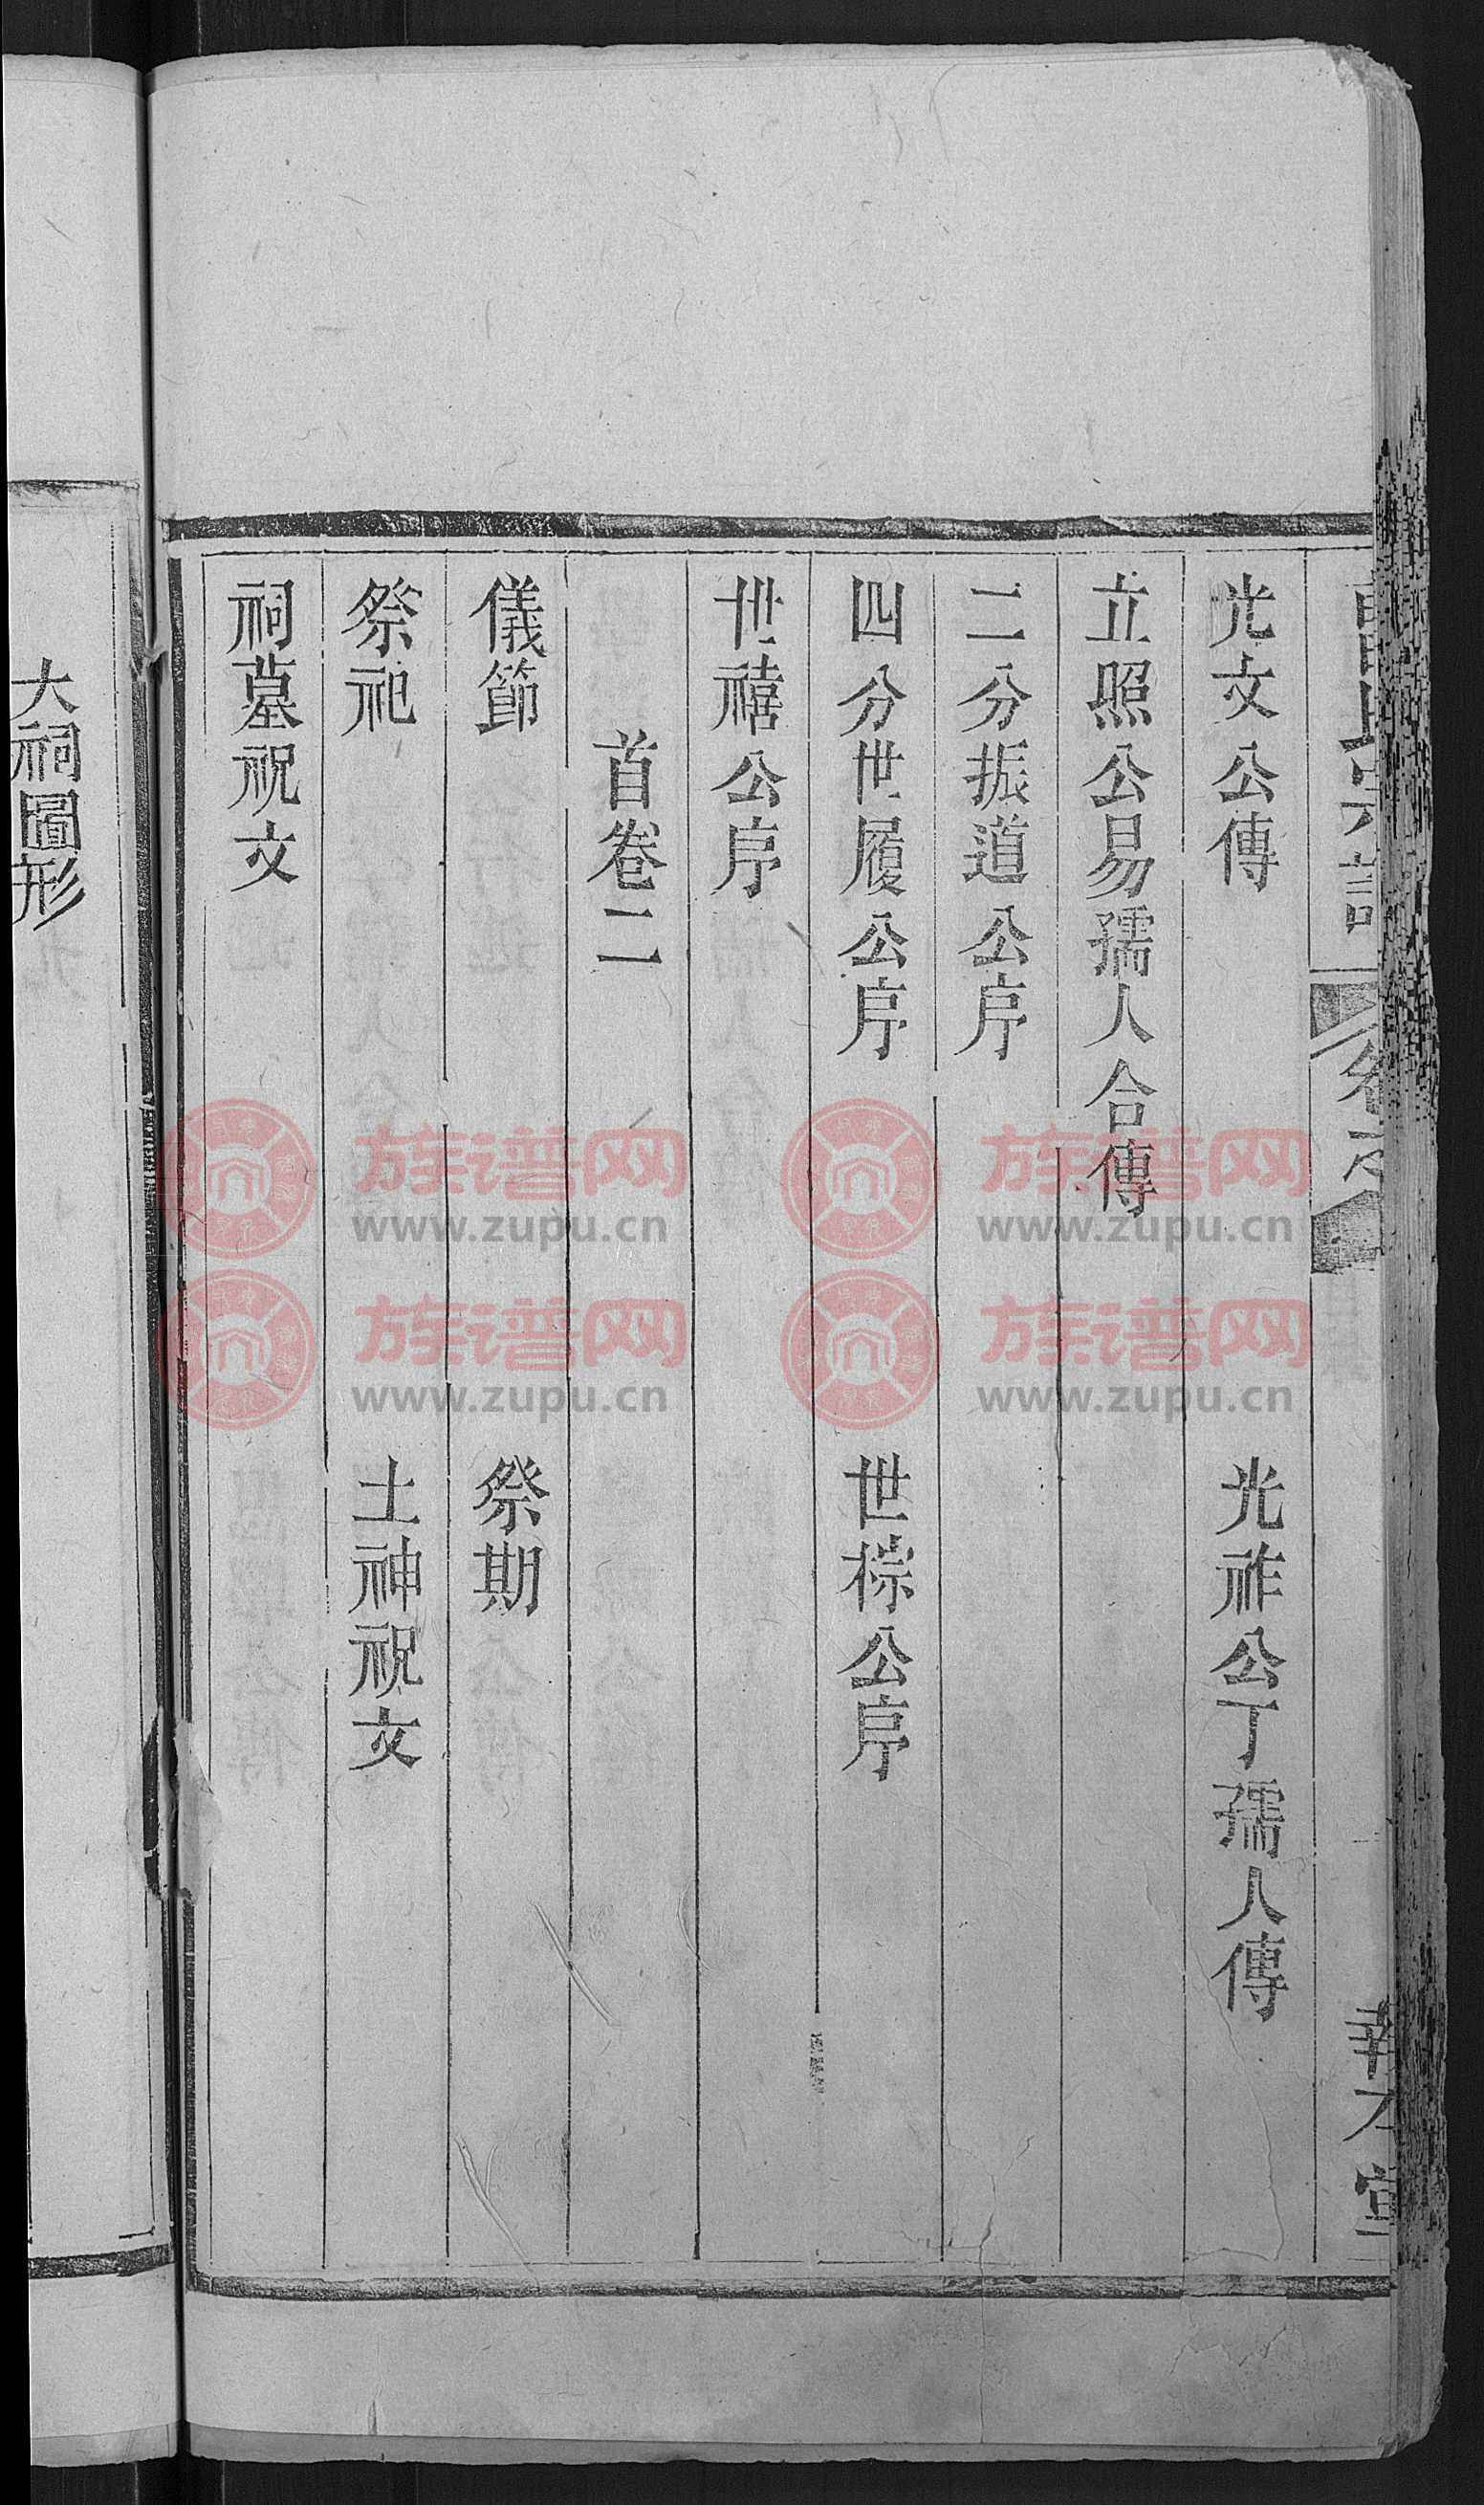 光文公傳　光祚公丁孺人傳
立照公易孺人合傳
二分振道公序
四分世履公序　世棕公序
世禧公序
首卷二
儀節　祭期
祭祀　土神祝文
祠墓祝文
大祠圖形
族谱网
www.zupu.cn
族谱网
www.zupu.cn
族谱网
www.zupu.cn
族谱网
www.zupu.cn